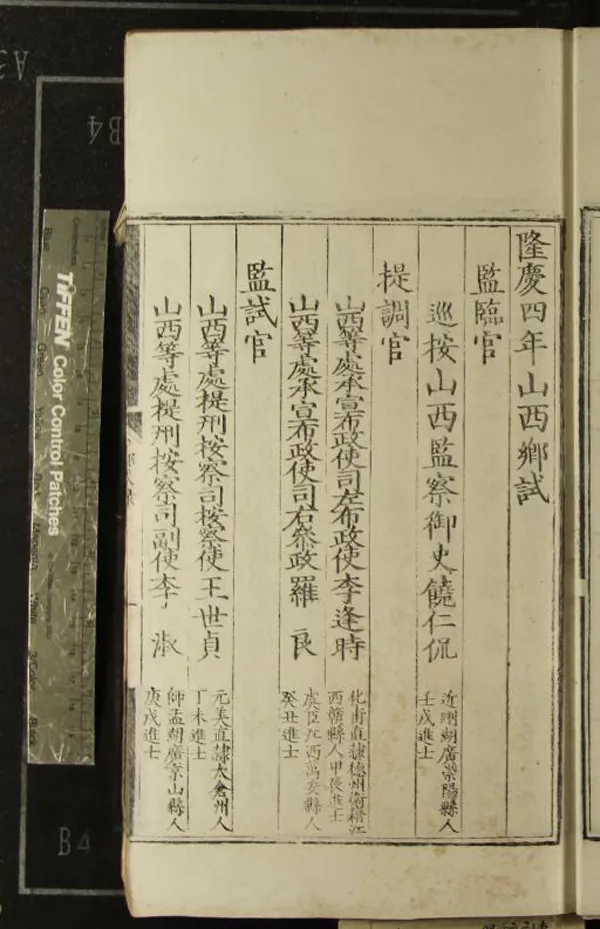 隆慶四年山西鄉試
監臨官
巡按山西監察御史饒仁侃
近剛湖廣崇陽縣人
壬戌進士
提調官
山西等處承宣布政使司左布政使李逢時
化甫直隸德州衛籍江
西贛縣人甲辰進士
山西等處承宣布政使司右叅政羅良
虞臣江西萬安縣人
癸丑進士
監試官
山西等處提刑按察司按察使王世貞
元美直隸太倉州人
丁未進士
山西等處提刑按察司副使李淑
師孟湖廣京山縣人
庚戌進士
TIFFEN Color Control Patches
B4
B4
A3